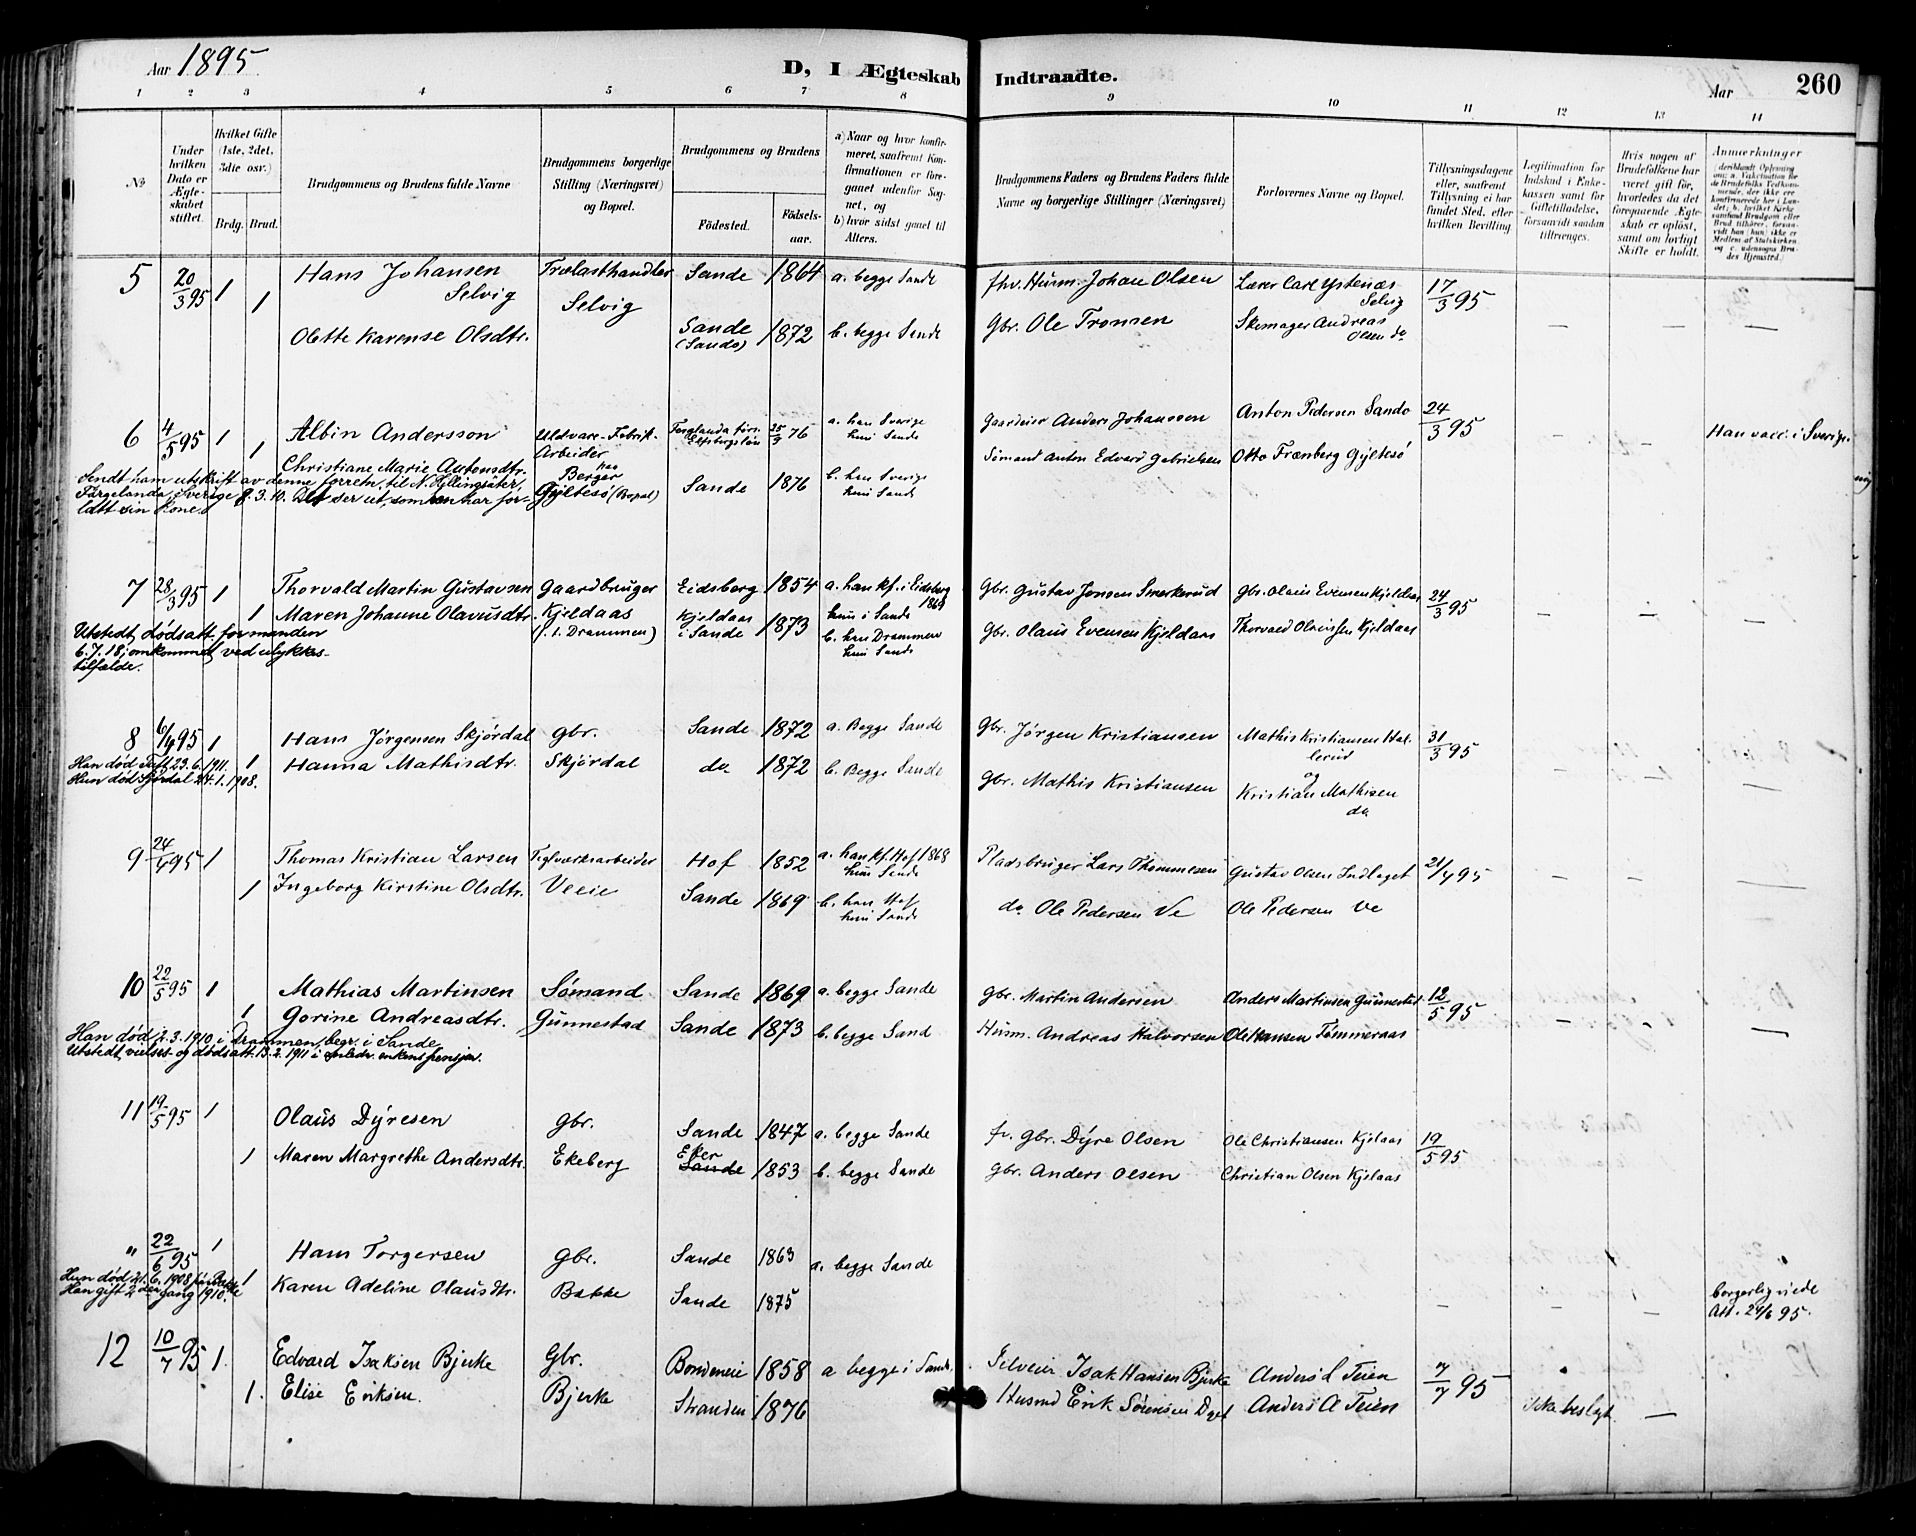 Aar 1895.
D, I Ægteskab Indtraadte.
Aar 260
1 2 3 4 5 6 7 8 9 10 11 12 13 14
No
Under hvilken Dato er Ægteskabet stiftet.
Hvilket Gifte (1ste, 2det, 3die osv.)
Brdg. Brud.
Brudgommens og Brudens fulde Navne
Brudgommens borgerlige Stilling (Næringsvei) og Bopæl.
Brudgommens og Brudens
Födested.
Födsels-aar.
a) Naar og hvor konfirmeret, saafremt Konfirmationen er foregaaet udenfor Sognet, og
b) hvor sidst gaaet til Alters.
Brudgommens Faders og Brudens Faders fulde Navne og borgerlige Stillinger (Næringsvei)
Forlovernes Navne og Bopæl.
Tillysningsdagene eller, saafremt Tillysning ei har fundet Sted, efter hvilken Bevilling
Legitimation for Indskud i Enkekassen samt for Giftetilladelse, forsaavidt saadan tiltrænges.
Hvis nogen af Brudefolkene har været gift før, hvorledes da det foregaaende Ægteskab er oplöst, samt om lovligt Skifte er holdt.
Anmærkninger
5 20/3 95 1 Hans Johansen Selvig Trælasthandler Sande 1864 a. begge Sande fhv. Husm. Johan Olsen Lærer Carl Ystenæs Selvig 17/3 95
1 Olette Karense Olsdtr. Selvig Sande (Sando) 1872 b. begge Sande Gbr. Ole Tronsen Skomager Andreas Olsen do — — —
6 4/5 95 1 Albin Andersson Uldvare-Fabrik-Arbeider 25/3 76 a. han Sverige hun Sande Gaardeier Anders Johanssen Anton Pedersen Sando 24/3 95 Han vacc. i Sverige.
1 Christiane Marie Antonsdtr. han Berger Gyltesö (Bopæl) Sande 1876 b. han Sverige hun Sande Sömand Anton Edvard Gabrielsen Otto Frænberg Gyltesö
Sendt ham utskrift av denne forretn. til N. Hellingsäter,
Färgelanda, Sverige 8.3.10. Det ser ut, som han har for-
ladt sin kone.
7 28/3 95 1 Thorvald Martin Gustavsen Gaardbruger Eidsberg 1854 a. han kf. i Eidsberg 1869 hun i Sande Gbr. Gustav Jensen Smerkerud Gbr. Olaus Evensen Kjeldaas 24/3 95
1 Maren Johanne Olavusdtr. Kjeldaas (f. t. Drammen) Kjeldaas i Sande 1873 b. han Drammen hun Sande Gbr. Olaus Evensen Kjeldaas Thorvald Olausen Kjeldaas — — —
Utstedt dødsatt. for manden
6.7.18; omkommet ved ulykkes-
tilfælde.
8 6/4 95 1 Hans Jørgensen Skjørdal gbr. Sande 1872 a. Begge Sande Gbr. Jørgen Kristiansen Mathis Kristiansen Hallerud 31/3 95
1 Hanna Mathisdtr. Skjørdal do 1872 b. Begge Sande Gbr. Mathis Kristiansen og Kristian Mathisen do. —
Han död 23.6.1911.
Hun död 24.1.1908.
9 24/4 95 1 Thomas Kristian Larsen Teglværksarbeider Hof 1852 a. han kf. Hof 1868 hun Sande Pladsbruger Lars Thommesen Gustav Olsen Indlaget 21/4 95 — — —
1 Ingeborg Kirstine Olsdtr. Veeie Sande 1869 b. han Hof, hun Sande do. Ole Pedersen Ve Ole Pedersen Ve
10 22/5 95 1 Mathias Martinsen Sømand Sande 1869 a. begge Sande gbr. Martin Andersen Anders Martinsen Gunnestad 12/5 95
1 Gorine Andreasdtr. Gunnestad Sande 1873 b. begge Sand Husm. Andreas Halvorsen Ole Hansen Tømmeraas — — —
Han død 2.3.1910 i Drammen, begr. i Sande.
Utstedt vielses og dødsatt. 13.2.1911 i anledn. enkens pensjon.
11 19/5 95 1 Olaus Dyresen gbr. Sande 1847 a. begge Sande fv. gbr. Dyre Olsen Ole Christiansen Kjelaas 19/5 95
1 Maren Margrethe Andersdtr. Ekeberg Eker Sande 1853 b. begge Sande gbr. Anders Olsen Christian Olsen Kjelaas
" 22/6 95 1 Hans Torgersen gbr. Sande 1863 a. begge Sande
1 Karen Adeline Olausdtr. Bakke Sande 1875 — — borgerlig viede Att. 24/6 95.
Hun død 21.6.1908 paa Bakke
Han gift 2den gang 1910.
12 10/7 95 1. Edvard Isaksen Bjerke Gbr. Bondeneie 1858 a begge i Sande. Selveier Isak Hansen Bjerke Anders L Teien 7/7 95
1. Elise Eriksen. Bjerke Stranden 1876 Husmd Erik Sörensen Anders A Teien Ikke beslegt. —